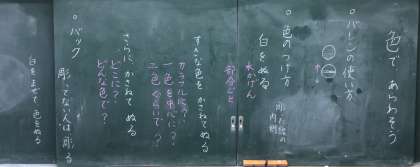 色で あらわそう
。バーンの使い方
。色のつけ方
彫った絵の内側
白をぬる
水かげん
部分ごと
すきな色を かさねて ぬる
カラフルに?
一色を中心に?
二色ぐらいで?
さらに、かさねて ぬる
どこに?
どんな色で?
。バック
彫ってない人は彫る
白をまぜて 色をぬる